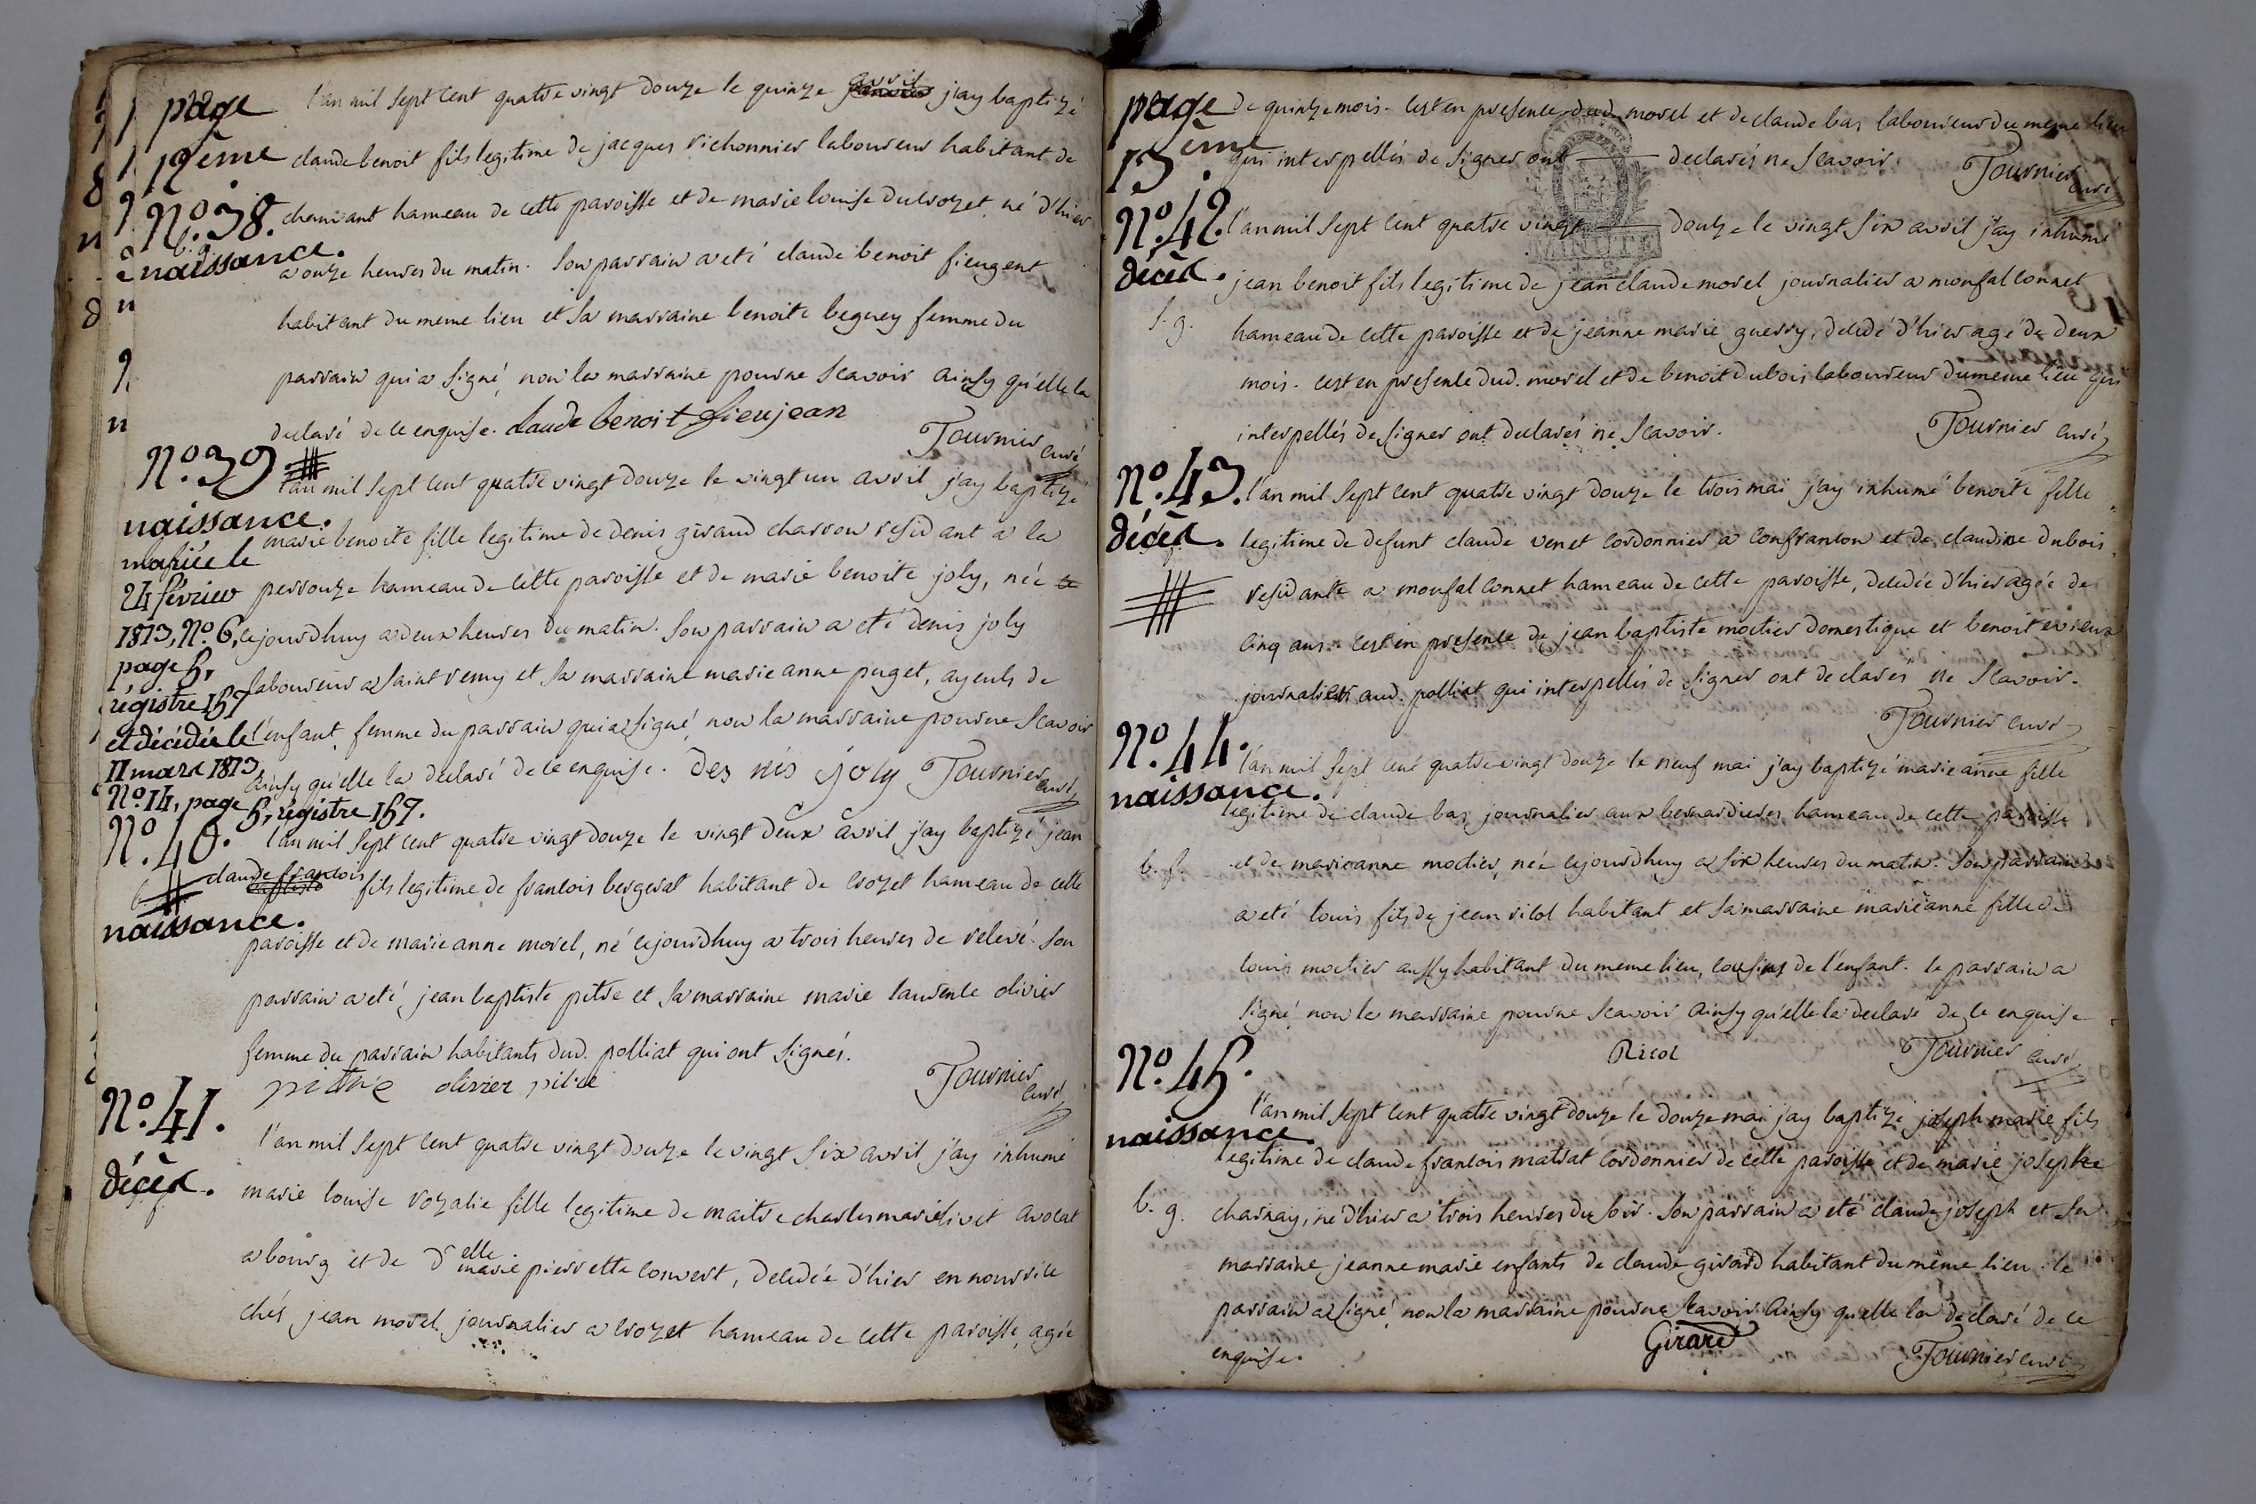 page
12ème
l'an mil sept cent quatre vingt douze le quinze avril j'ay baptizé
claude benoit fils legitime de jacques vichonnier laboureur habitant de
N.º 38.
b. g.
naissance.
chamant hameau de cette paroisse et de marie louise ducrozet, né d'hier
a onze heures du matin. son parrain a eté claude benoit fieugent
habitant du meme lieu et sa marraine benoite beguey femme du
parrain qui a signé, non la marraine pour ne scavoir ainsy qu'elle la
declaré de ce enquise. claude benoit fieujean
Tournier curé
N.º 39
naissance.
mariée le
24 février
1813, N.º 6,
page 5,
régistre 157
et décédée le
11 mars 1813,
N.º 14, page 5, régistre 157.
l'an mil sept cent quatre vingt douze le vingt un avril j'ay baptizé
marie benoite fille legitime de denis giraud charron residant a la
perrouze hameau de cette paroisse et de marie benoite joly, née
cejourdhuy a deux heures du matin. son parrain a eté denis joly
laboureur a saint remy et sa marraine marie anne puget, ayeuls de
l'enfant, femme du parrain qui a signé, non la marraine pour ne scavoir
ainsy qu'elle la declaré de ce enquise. des nis joly Tournier curé
N.º 40.
b.
naissance.
l'an mil sept cent quatre vingt douze le vingt deux avril j'ay baptizé jean
claude francois
baptiste fils legitime de francois bergerat habitant de crozet hameau de cette
paroisse et de marie anne morel, né cejourdhuy a trois heures de relevé. son
parrain a eté jean baptiste pitre et sa marraine marie laurence olivier
femme du parrain habitants dud. polliat qui ont signés.
pitre olivier pitre
Tournier curé
N.º 41.
décès.
f.
l'an mil sept cent quatre vingt douze le vingt six avril j'ay inhumé
marie louise rozalie fille legitime de maitre charles marie livet avocat
a bourg et de d elle marie pierrette convert, decedée d'hier en nourrice
chés jean morel journalier a crozet hameau de cette paroisse, agée
page
13ème.
de quinze mois. c'est en presence dud. morel et de claude bas laboureur du meme lieu
qui interpellés de signer ont declarés ne scavoir. Tournier curé
MINUTE
N.º 42.
décès.
s. g.
l'an mil sept cent quatre vingt douze le vingt six avril j'ay inhumé
jean benoit fils legitime de jean claude morel journalier a monfalconnet
hameau de cette paroisse et de jeanne marie guerry, decedé d'hier agé de deux
mois. c'est en presence dud. morel et de benoit dubois laboureur du meme lieu qui
interpellés de signer ont declarés ne scavoir. Tournier curé
N.º 43.
décès.
f.
l'an mil sept cent quatre vingt douze le trois mai j'ay inhumé benoite fille
legitime de defunt claude venet cordonnier a confrancon et de claudine dubois
residante a monfalconnet hameau de cette paroisse, decedée d'hier agée de
cinq ans. c'est en presence de jean baptiste moctier domestique et benoit
journaliers aud. polliat qui interpellés de signer ont declarés ne scavoir.
Tournier curé
N.º 44.
naissance.
b. f.
l'an mil sept cent quatre vingt douze le neuf mai j'ay baptizé marie anne fille
legitime de claude bas journalier aux bernardieres hameau de cette paroisse
et de marie anne moctier, née cejourdhuy a six heures du matin. son parrain
a eté louis fils de jean ricol habitant et sa marraine marie anne fille de
louis moctier aussy habitant du meme lieu, cousins de l'enfant. le parrain a
signé, non la marraine pour ne scavoir ainsy qu'elle la declaré de ce enquise
Ricol
Tournier curé
N.º 45.
naissance.
b. g.
l'an mil sept cent quatre vingt douze le douze mai j'ay baptizé joseph marie fils
legitime de claude francois matrat cordonnier de cette paroisse et de marie josephe
charnay, né d'hier a trois heures du soir. son parrain a eté claude joseph et sa
marraine jeanne marie enfants de claude girard habitant du même lieu. le
parrain a signé, non la marraine pour ne scavoir ainsy qu'elle la declaré de ce
enquise.
Girard
Tournier curé